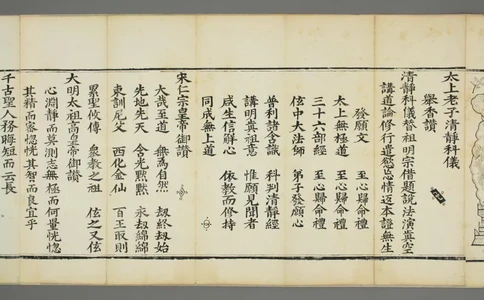 太上老子清靜科儀
舉香讚
清靜科儀昔祖明宗借題說法演真空
講道論修行遣慾忘情返本證無生
發願文　至心歸命禮
太上無極道　至心歸命禮
三十六部經　至心歸命禮
伭中大法師　弟子發願心
普利諸含識　科判清靜經
講明真祖意　惟願見聞者
咸生信解心　依教而修持
同成無上道
宋仁宗皇帝御讚
大哉至道　無為自然　劫終劫始
先地先天　含光默默　永劫綿綿
東訓尼父　西化金仙　百王取則
累聖攸傳　眾教之祖　伭之又伭
大明太祖高皇帝御讚
心淵靜而莫測志無極而何量恍惚
其精而窈惚恍其智而良宜乎
千古聖人務晦短而云長